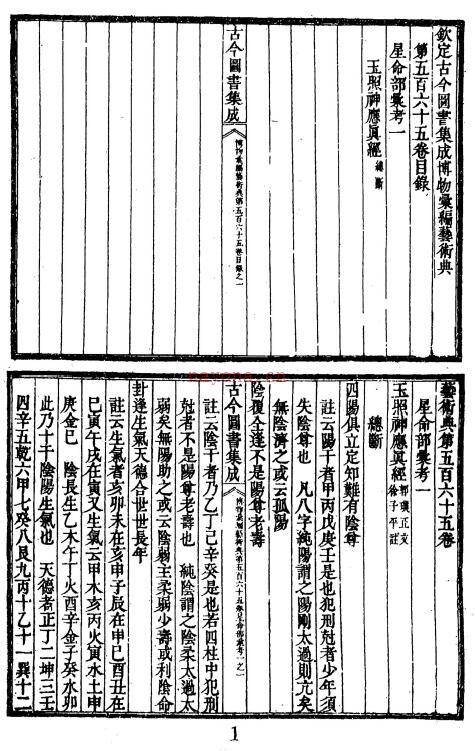 欽定古今圖書集成博物彙編藝術典
第五百六十五卷目錄
星命部彙考一
玉照神應眞經總斷
古今圖書集成
博物彙編藝術典第五百六十五卷目錄之一
藝術典第五百六十五卷
星命部彙考一
玉照神應眞經 郭璞正文 徐子平註
總斷
四陽俱立定知難有陰尊
註云陽干者甲丙戊庚壬是也犯刑尅者少年須
失陰尊也 凡八字純陽謂之陽剛太過則亢矣
無陰濟之或云孤陽
陰覆全逢不是陽尊老壽
古今圖書集成
博物彙編藝術典第五百六十五卷星命部彙考一之一
註云陰干者乃乙丁己辛癸是也若四柱中犯刑
尅者不是陽尊老壽也 純陰謂之陰柔太過太
弱矣無陽助之或云陰弱主柔弱少壽或利陰命
卦逢生氣天德合世世長年
註云生氣者亥卯未在亥申子辰在申巳酉丑在
巳寅午戌在寅又生氣云甲木亥丙火寅水土申
庚金巳 陰長生乙木午丁火酉辛金子癸水卯
此乃十干陰陽生氣也 天德者正丁二坤三壬
四辛五乾六甲七癸八艮九丙十乙十一巽十二
nayona.cn
1